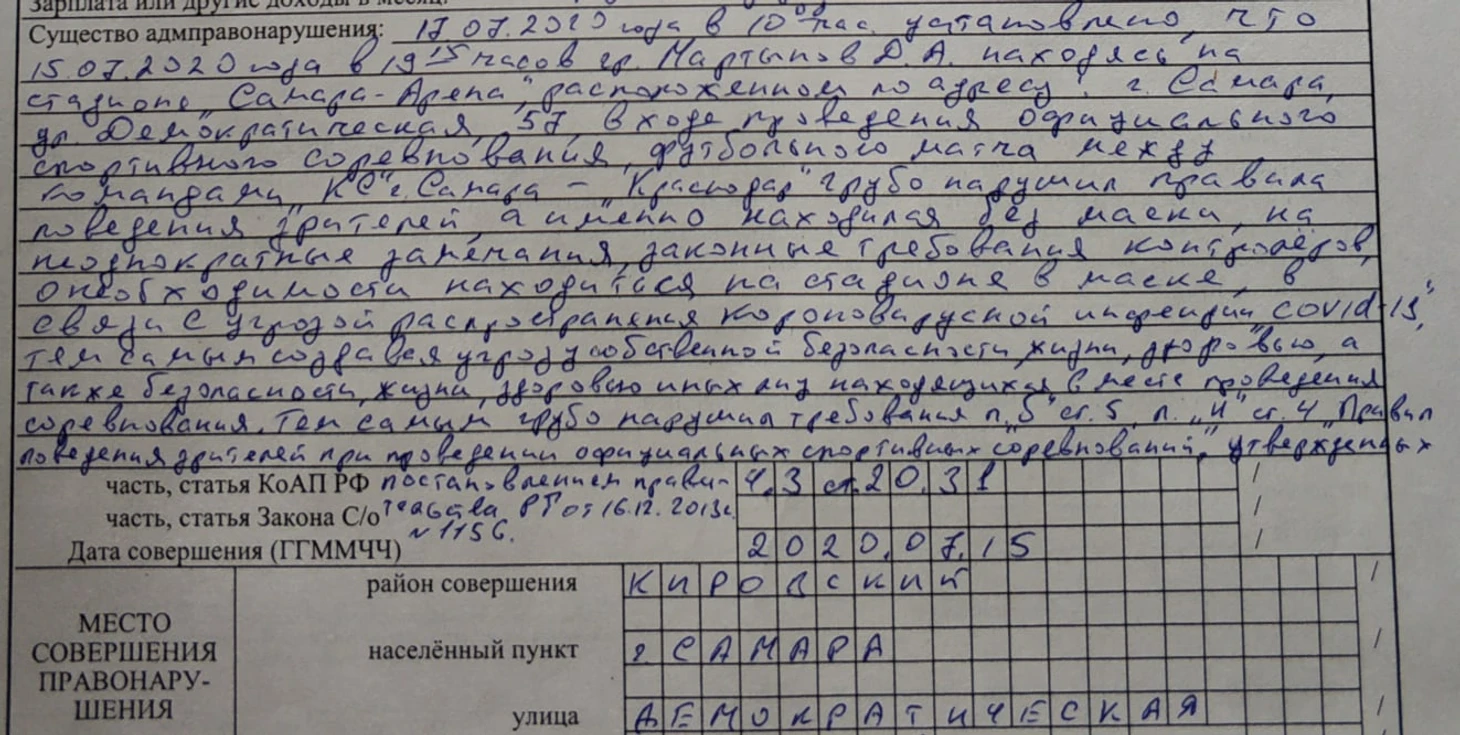 Зарплата или другие доходы в месяц:
Существо админправонарушения: 17.07.2020 года в 10 00 час. установлено, что
15.07.2020 года в 19 15 часов гр. Мартынов Д.А. находясь на
стадионе „Самара-Арена", расположенном по адресу: г. Самара,
ул. Демократическая, 57, в ходе проведения официального
спортивного соревнования, футбольного матча между
командами „КС" г. Самара – „Краснодар" грубо нарушил правила
поведения зрителей, а именно находился без маски, на
неоднократные замечания, законные требования контролёров,
о необходимости находиться на стадионе в маске, в
связи с угрозой распространения короновирусной инфекции „COVID-19",
тем самым создавая угрозу собственной безопасности, жизни, здоровью, а
также безопасности, жизни, здоровью иных лиц находящихся в месте проведения
соревнования. Тем самым грубо нарушил требования п. „Б" ст. 5, п. „И" ст. 4 „Правил
поведения зрителей при проведении официальных спортивных соревнований", утвержденных
часть, статья КоАП РФ постановлением прави- ч.3 ст.20.31 /
часть, статья Закона С/о тельства РФ от 16.12.2013г. /
№1156.
Дата совершения (ГГММЧЧ) 2020.07.15 /
район совершения КИРОВСКИЙ /
МЕСТО
СОВЕРШЕНИЯ населённый пункт г САМАРА /
ПРАВОНАРУ-
ШЕНИЯ улица ДЕМОКРАТИЧЕСКАЯ /